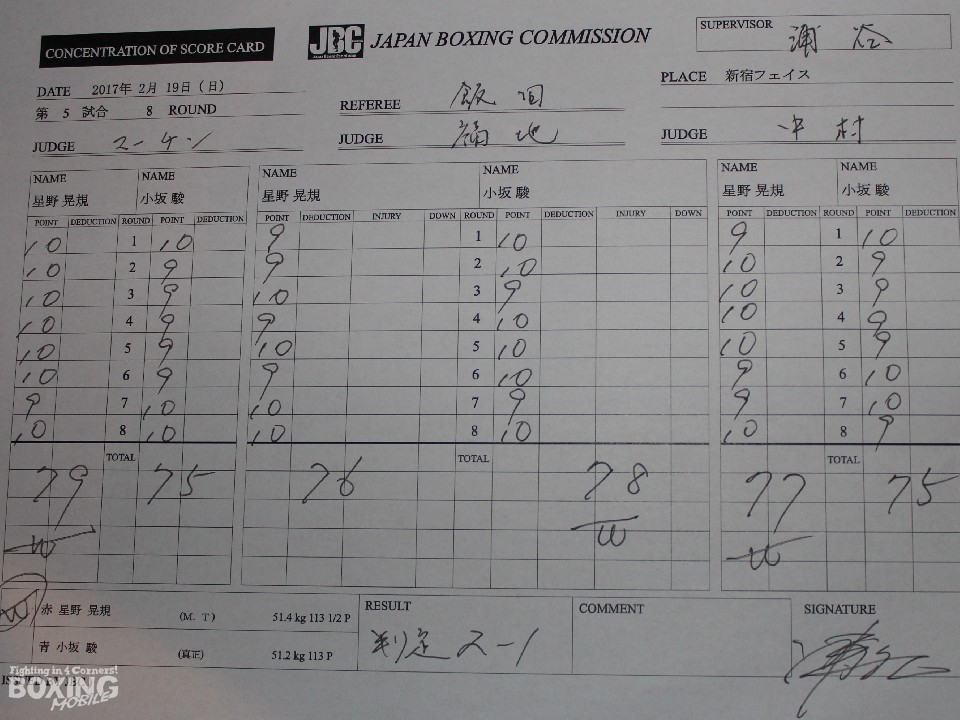 CONCENTRATION OF SCORE CARD
JBC JAPAN BOXING COMMISSION
SUPERVISOR 浦谷
DATE 2017年 2月 19日(日)
PLACE 新宿フェイス
第 5 試合 8 ROUND
REFEREE 飯田
JUDGE マーチン
JUDGE 福地
JUDGE 中村
NAME NAME NAME NAME NAME NAME
星野 晃規 小坂 駿 星野 晃規 小坂 駿 星野 晃規 小坂 駿
POINT DEDUCTION ROUND POINT DEDUCTION POINT DEDUCTION INJURY DOWN ROUND POINT DEDUCTION INJURY DOWN POINT DEDUCTION ROUND POINT DEDUCTION
10 1 10 9 1 10 9 1 10
10 2 9 9 2 10 10 2 9
10 3 9 10 3 9 10 3 9
10 4 9 9 4 10 10 4 9
10 5 9 10 5 10 10 5 9
10 6 9 9 6 10 9 6 10
9 7 10 10 7 9 9 7 10
10 8 10 10 8 10 10 8 9
TOTAL TOTAL TOTAL
79 75 76 78 77 75
W W W
W 赤 星野 晃規 (M. T) 51.4 kg 113 1/2 P
青 小坂 駿 (真正) 51.2 kg 113 P
RESULT
判定 2-1
COMMENT
SIGNATURE
Fighting in 4 Corners!
BOXING
MOBILE